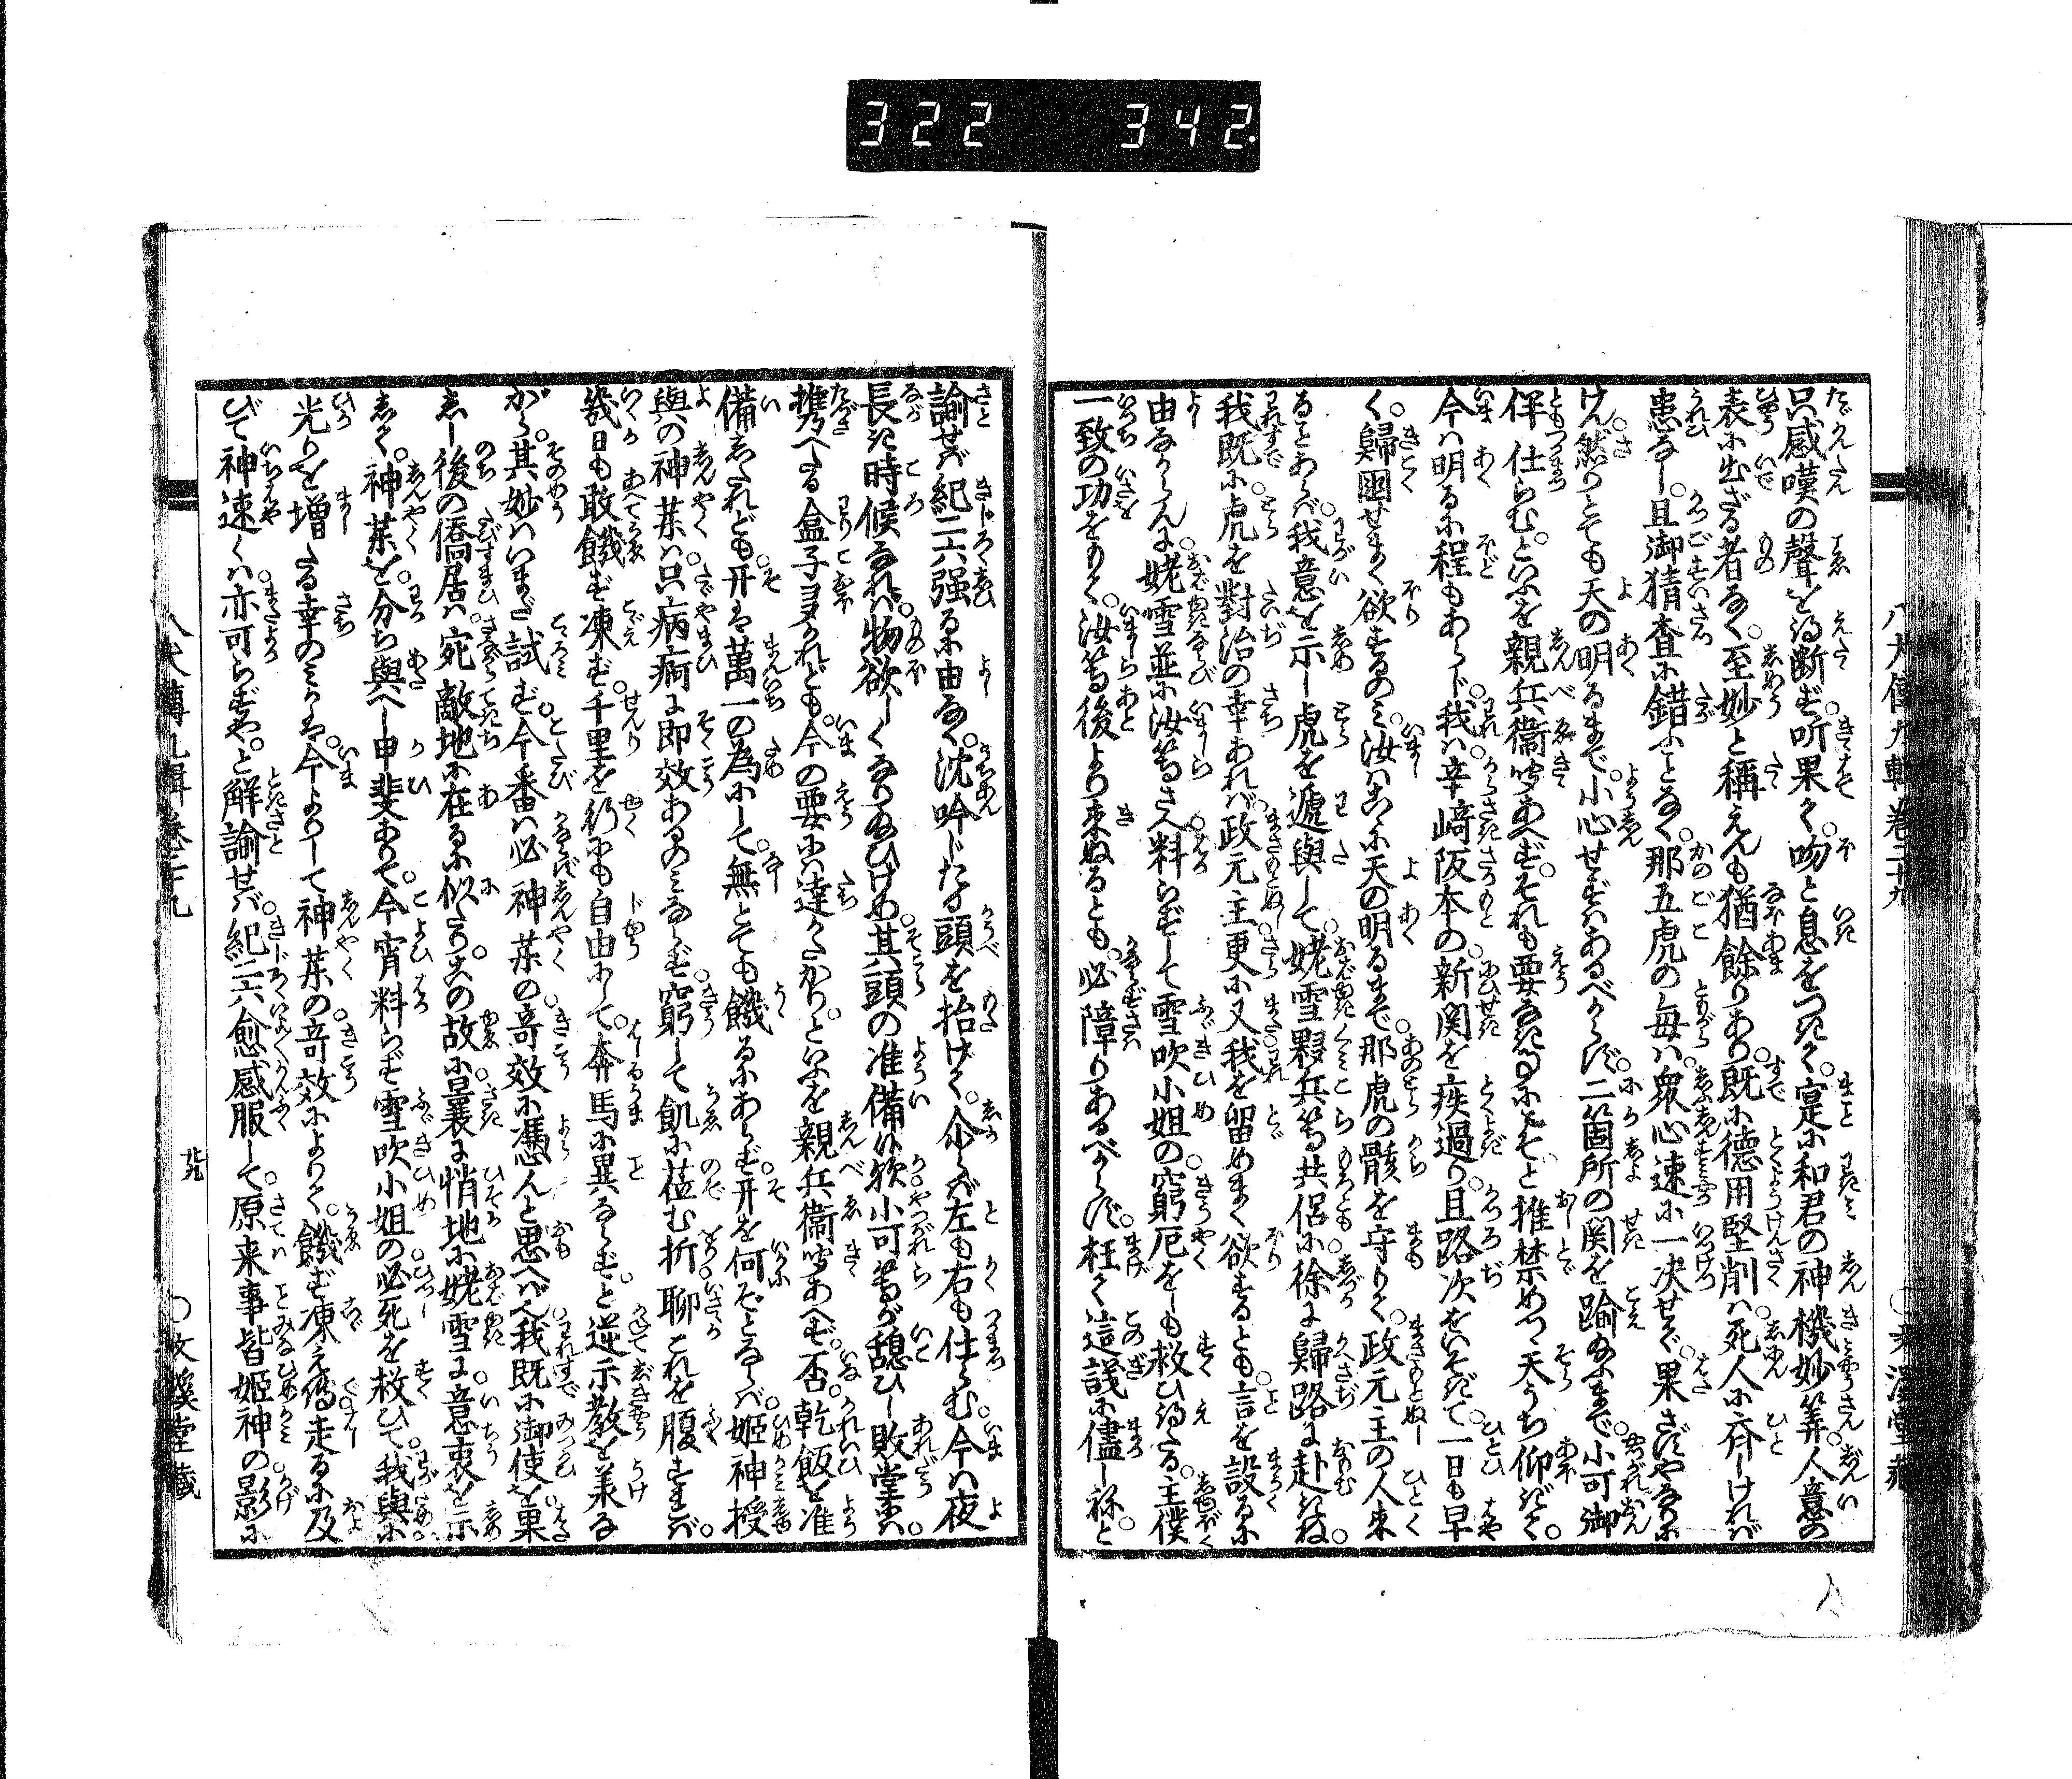 322 342
只感嘆の聲を得断ず。听果て。吻と息をつきて。寔に和君の神機妙筭。人意の
表に出ざる者なく。至妙と稱えんも猶餘りあり。既に德用堅削は。死人に齊しければ
患なし。且御猜査に錯ふことなく。那五虎の毎は。衆心速に一决せで。果さずやなりに
けん。然りとても天の明るまで。小心せずはあるべからず。二箇所の関を踰給ふまで。小可御
伴仕らむ。といふを親兵衞听あへず。それも要なき事にこそ。と推禁めつゝ天うち仰ぎて。
今は明るに程もあらじ。我は辛﨑阪本の。新関を疾過り。且路次をいそぎて。一日も早
く。歸國せまく欲するのみ。汝はこゝに天の明るまで。那虎の骸を守りて。政元主の人来
ることあらば。我意を示し虎を遞與して。姥雪夥兵等共侶に。徐に歸路に赴きね。
我既に。虎を對治の幸あれば。政元主。更に又。我を留めまく欲するとも。言を設るに
由なからんに。姥雪並に汝等さへ。料らずして雪吹小姐の。窮厄をしも救ひ得たる。主僕
一致の功をもて。汝等後より来ぬるとも。必障りあるべからず。枉て這議に儘しねと
諭せば紀二六强るに由なく。沈吟じたる頭を抬げて。尒らば左も右も仕らむ。今は夜
長き時候なれば。物欲しくなり給ひけめ。其頭の准備は候歟。小可等が憩ひし敗堂には。
携へたる盒子ヨあれども。今の要には達がたかり。といふを親兵衞听あへず。否。乾飯を准
備したれども。开は萬一の為にして。無とても饑るにあらず。开を何ぞとならば。姬神授
與の神藥は。只病痾に即效あるのみならず。窮して飢に莅む折。聊これを腹すれば。
幾日も敢饑ず凍ず。千里を行にも自由にして。奔馬に異ならず。と逆示教を美な
がら。其妙はいまだ試ず。今番は必神藥の竒效に憑んと思へばへ。我既に御使を果
しし後の僑居は。宛敵地に在るに似たり。この故に曩に悄地に姥雪に意衷を示
しゝて。神藥を分ち與へし甲斐ありて。今宵料らず雪吹小姐の必死を救ひて。我與に
光りを増たる幸のみかは。今よりして神藥の竒效によりて。饑ず凍えず走るに及
びて神速くは亦可らずや。と解諭せば。紀二六愈感服して。原来事皆姬神の影に
八犬傳九輯卷二十九